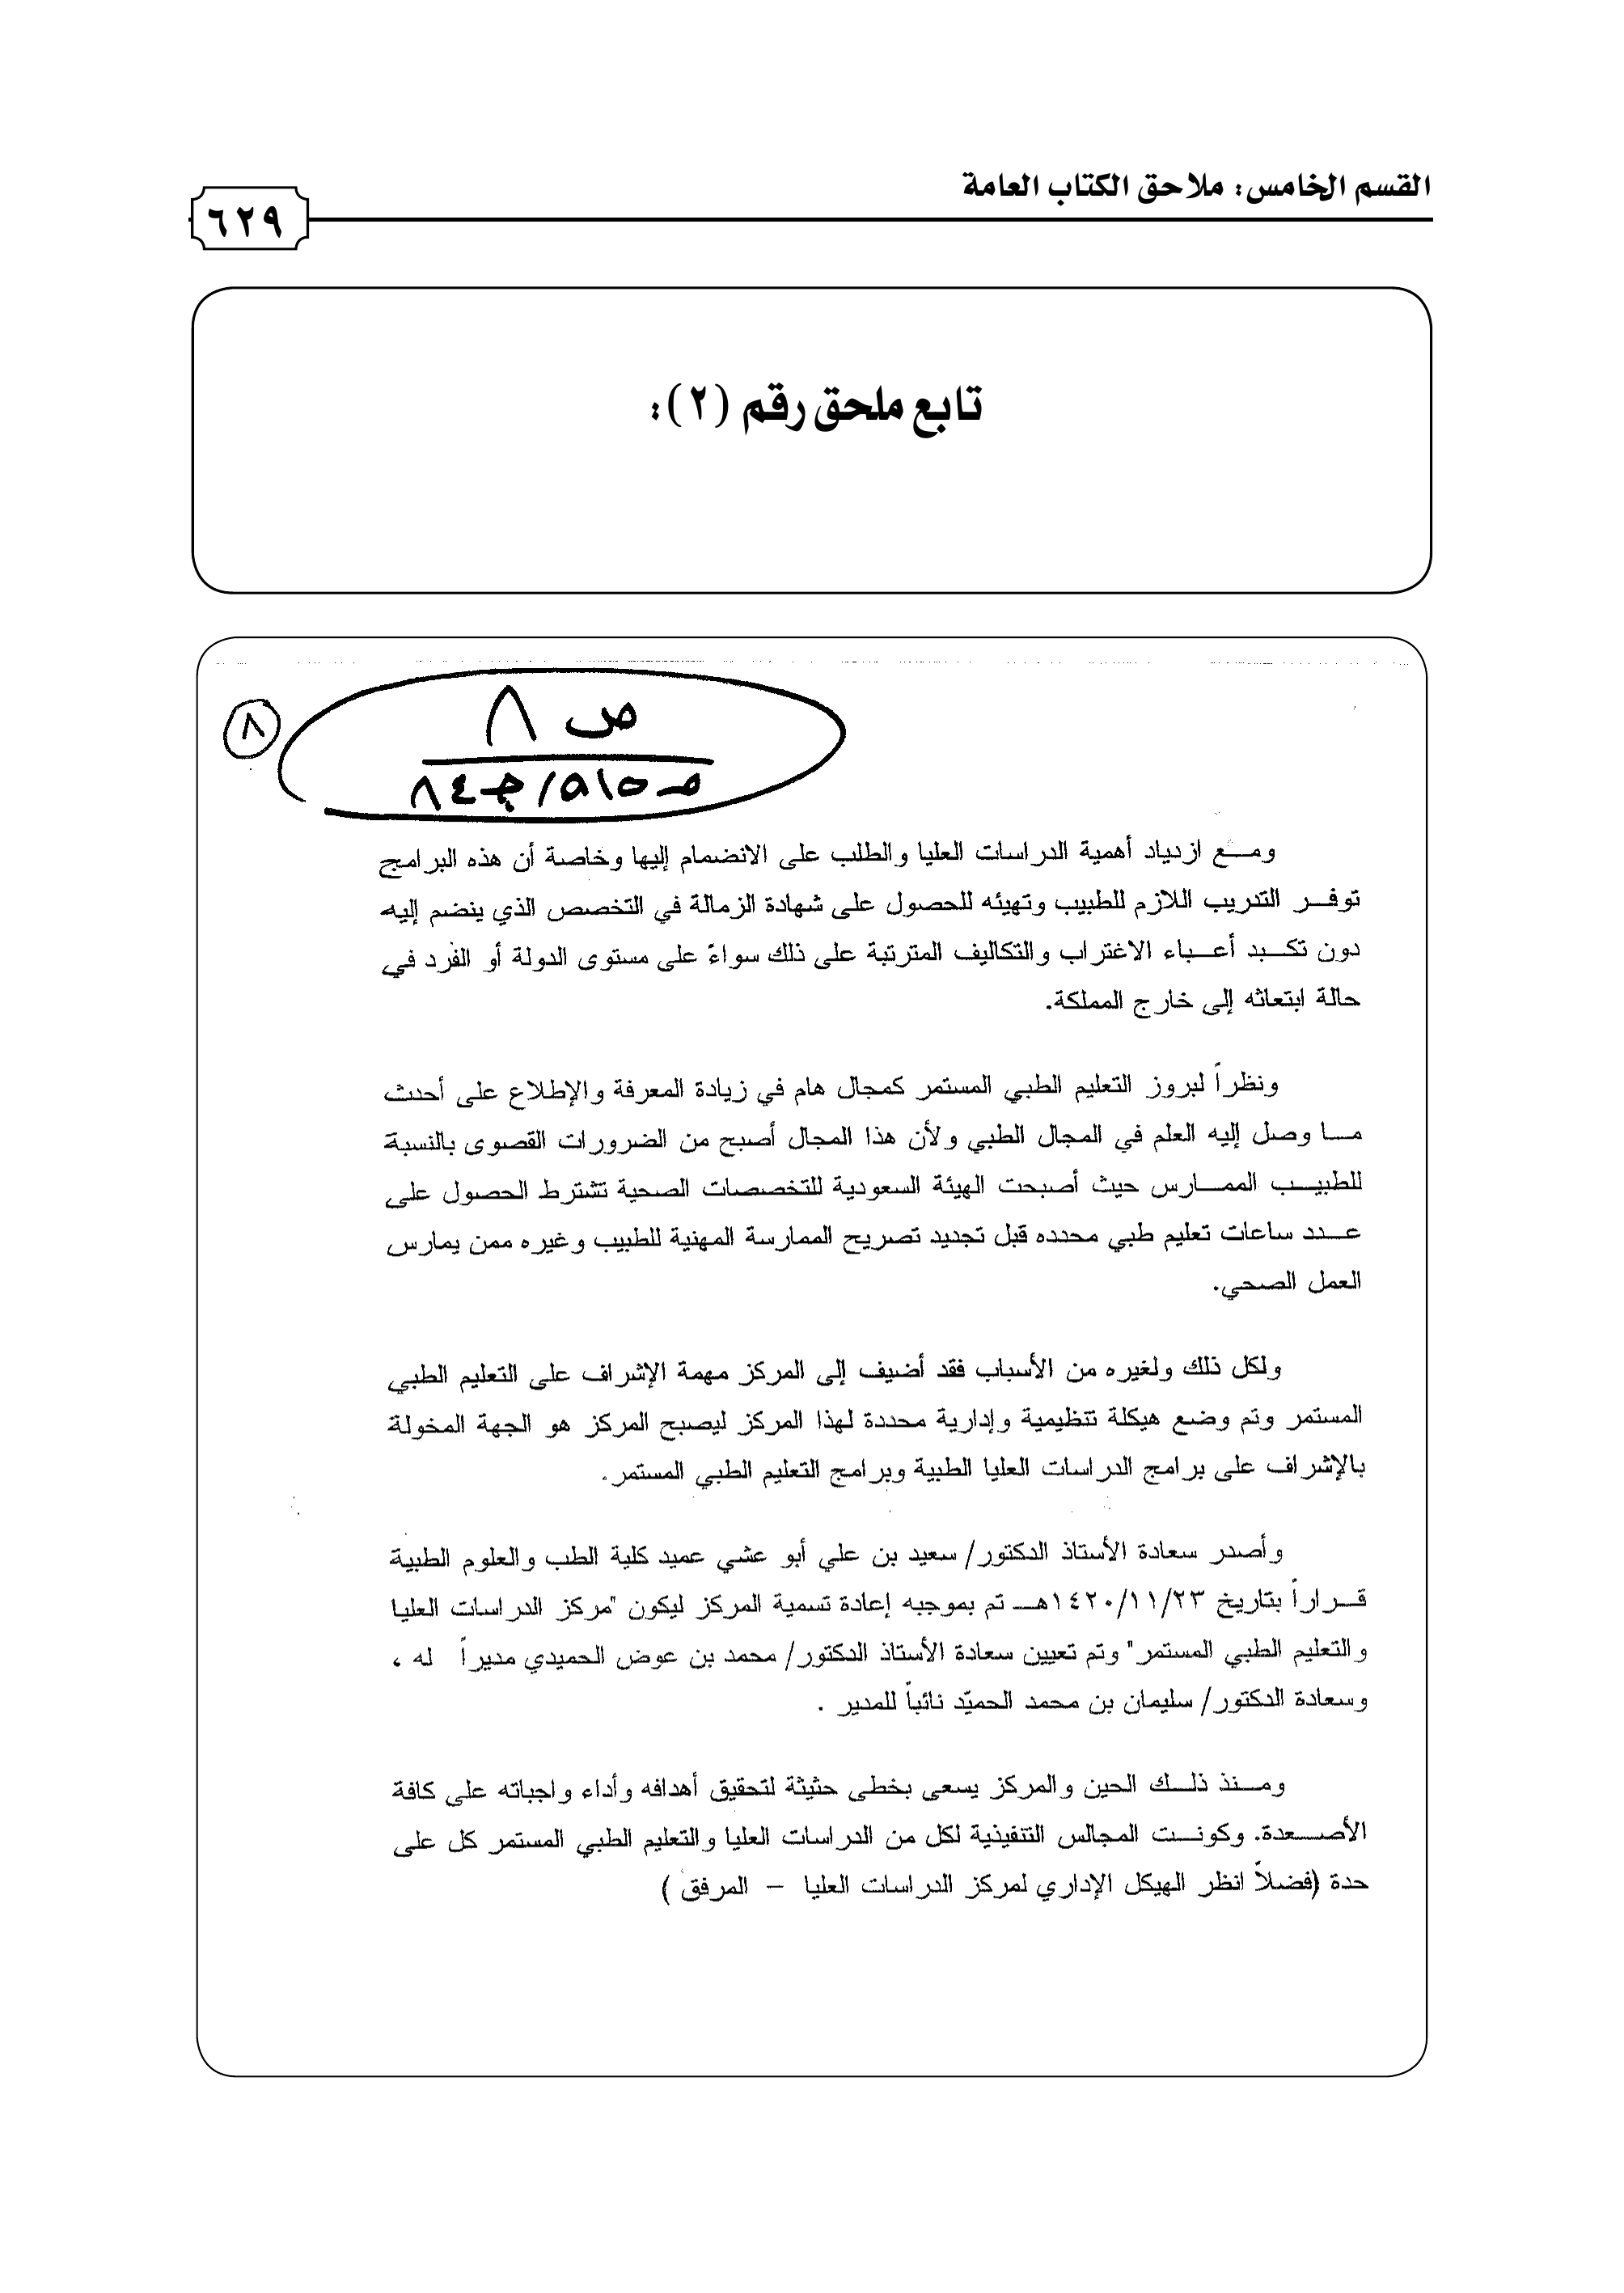 القسم الخامس: ملاحق الكتاب العامة
٦٢٩
تابع ملحق رقم (٢):
٨
ص ٨
ومـــع ازدياد أهمية الدراسات العليا والطلب على الانضمام إليها وخاصة أن هذه البرامج
توفـــر التدريب اللازم للطبيب وتهيئه للحصول على شهادة الزمالة في التخصص الذي ينضم إليه
دون تكـــبد أعـــباء الاغتراب والتكاليف المترتبة على ذلك سواءً على مستوى الدولة أو الفرد في
حالة ابتعاثه إلى خارج المملكة.
ونظراً لبروز التعليم الطبي المستمر كمجال هام في زيادة المعرفة والإطلاع على أحدث
مـــا وصل إليه العلم في المجال الطبي ولأن هذا المجال أصبح من الضرورات القصوى بالنسبة
للطبيـــب الممـــارس حيث أصبحت الهيئة السعودية للتخصصات الصحية تشترط الحصول على
عـــدد ساعات تعليم طبي محدده قبل تجديد تصريح الممارسة المهنية للطبيب وغيره ممن يمارس
العمل الصحي.
ولكل ذلك ولغيره من الأسباب فقد أضيف إلى المركز مهمة الإشراف على التعليم الطبي
المستمر وتم وضع هيكلة تنظيمية وإدارية محددة لهذا المركز ليصبح المركز هو الجهة المخولة
بالإشراف على برامج الدراسات العليا الطبية وبرامج التعليم الطبي المستمر.
وأصدر سعادة الأستاذ الدكتور/ سعيد بن علي أبو عشي عميد كلية الطب والعلوم الطبية
قـــراراً بتاريخ ١٤٢٠/١١/٢٣هـــ تم بموجبه إعادة تسمية المركز ليكون "مركز الدراسات العليا
والتعليم الطبي المستمر" وتم تعيين سعادة الأستاذ الدكتور/ محمد بن عوض الحميدي مديراً له ،
وسعادة الدكتور/ سليمان بن محمد الحميّد نائباً للمدير .
ومـــنذ ذلـــك الحين والمركز يسعى بخطى حثيثة لتحقيق أهدافه وأداء واجباته على كافة
الأصـــعدة. وكونـــت المجالس التنفيذية لكل من الدراسات العليا والتعليم الطبي المستمر كل على
حدة (فضلاً انظر الهيكل الإداري لمركز الدراسات العليا – المرفق )